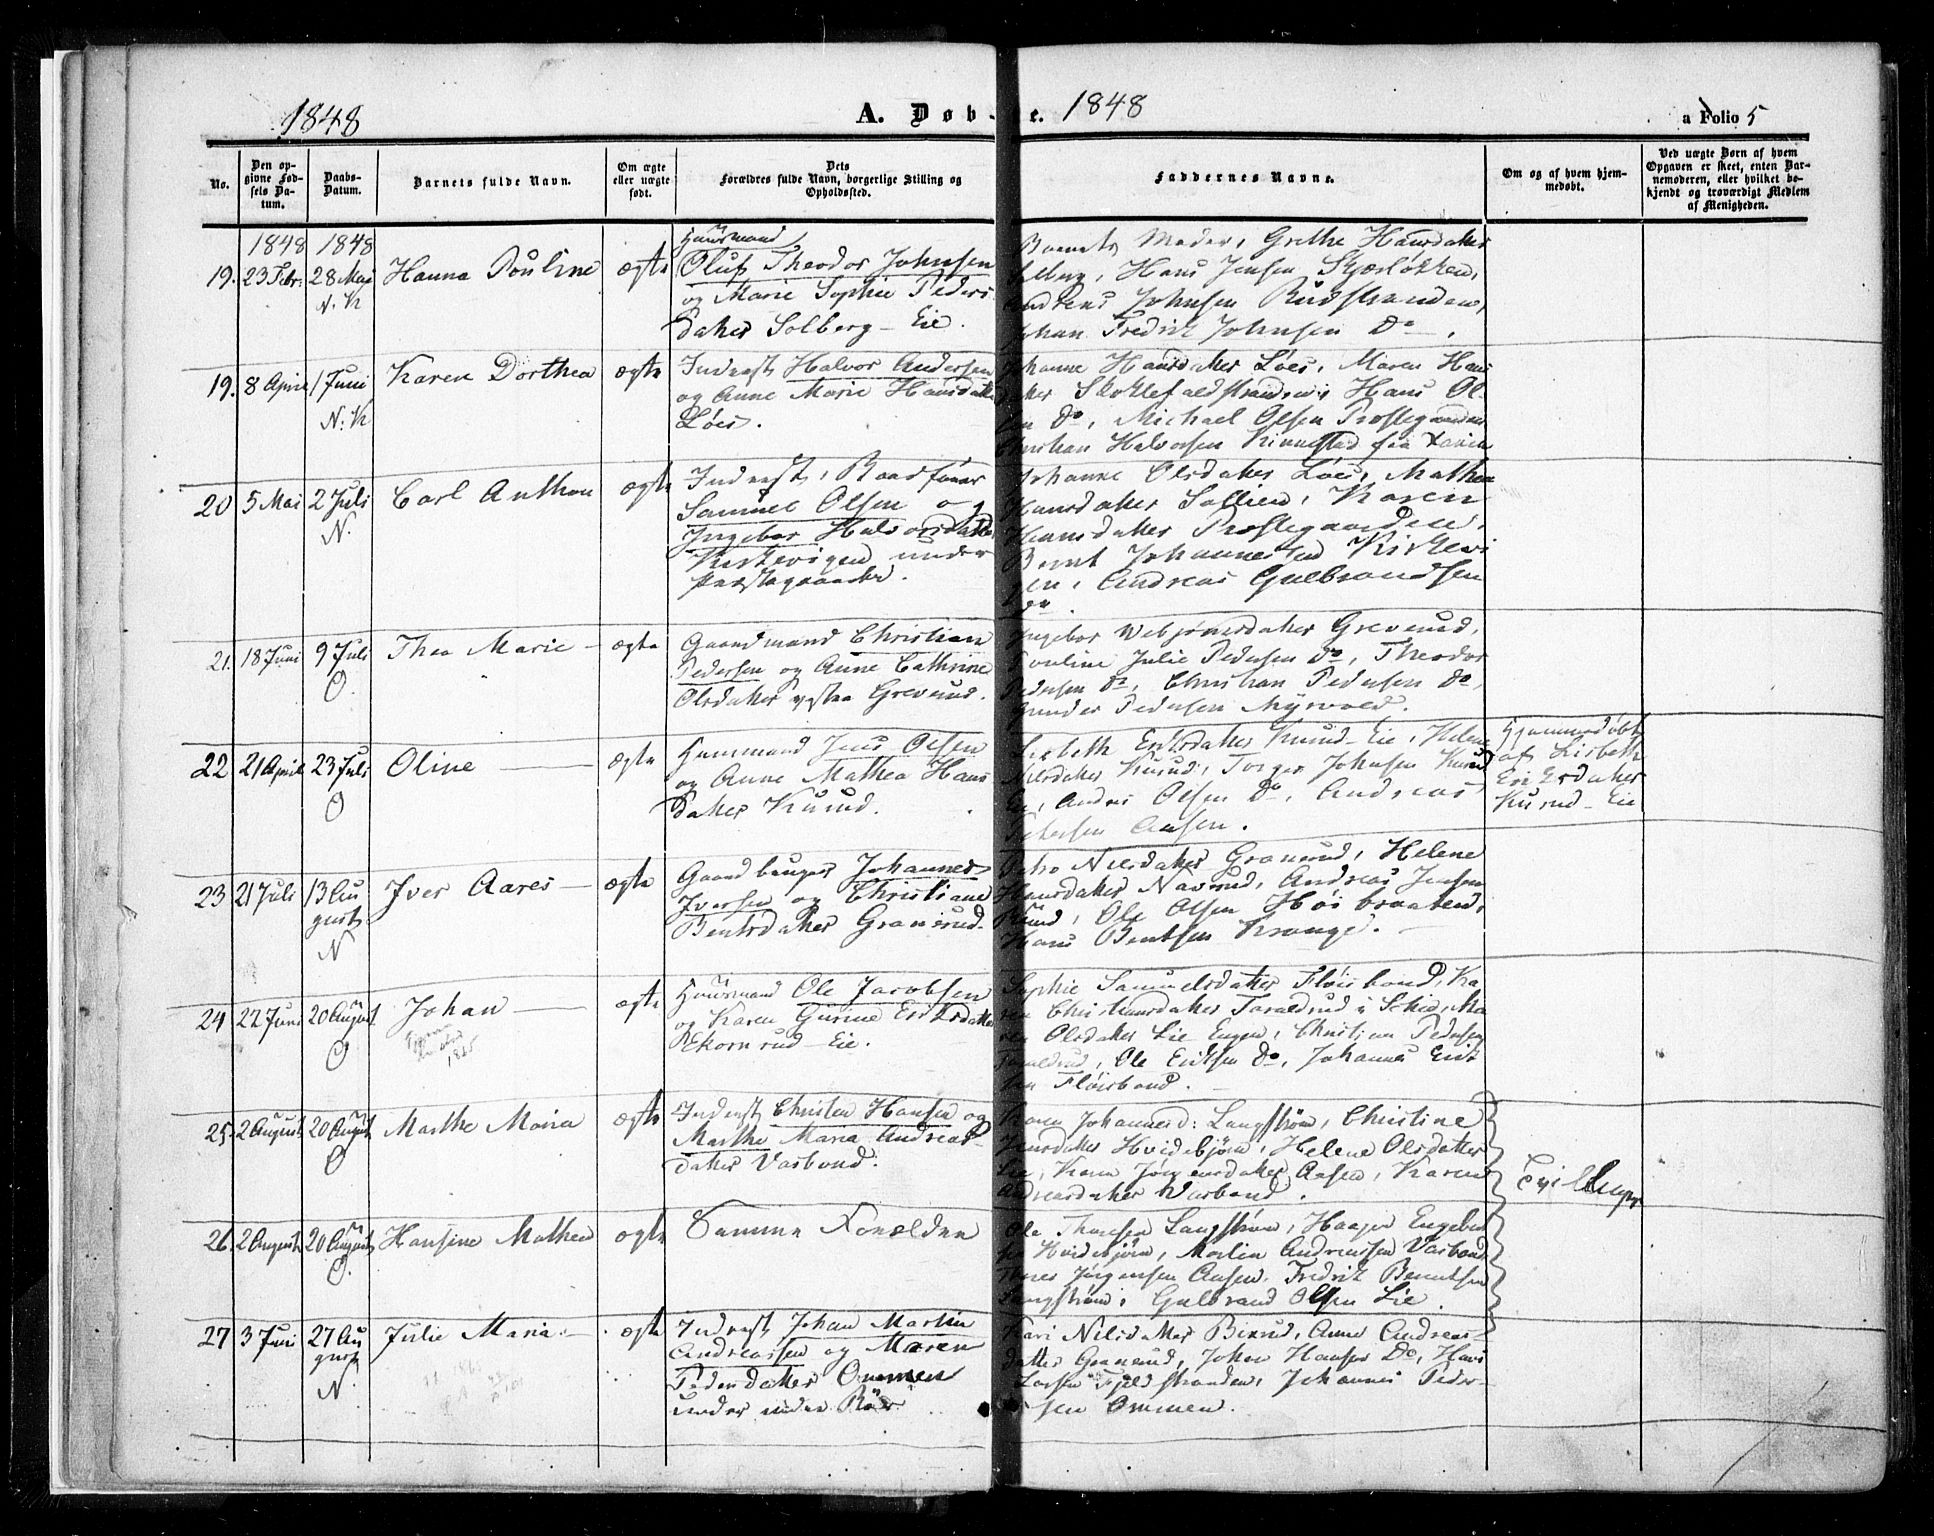 1848
A. Døb-
e.
1848
a Folio 5
No.
Den op-
givne Fød-
sels Da-
tum.
Daabs-
Datum.
Barnets fulde Navn.
Om ægte
eller uægte
født.
Dets
Forældres fulde Navn, borgerlige Stilling og
Opholdssted.
Faddernes Navne.
Om og af hvem hjem-
medøbt.
Ved uægte Børn af hvem
Opgaven er skeet, enten Bar-
nemoderen, eller hvilket be-
kjendt og troværdigt Medlem
af Menigheden.
1848 1848
19. 23 Febr. 28 Mai N. K Hanna Pouline ægte
Huusmand
Oluf Theodor Johnsen
og Marie Sophie Peders
datter Solberg – Eie.
Barnets Moder, Grethe Hansdatter
Solberg, Hans Jensen Skjærløkken,
Andreas Johnsen Rudstranden,
Johan Fredrik Johnsen Do.
19. 8 April 1 Juni N. K Karen Dorthea ægte
Inderst Halvor Andersen
og Anne Marie Hansdatter
Løes.
Johanne Hansdatter Løes, Maren Hans
datter Skoklefaldstranden, Hans Ol-
sen Do, Michael Olsen Prestegaarden
Christian Halvorsen
20 5 Mai 2 Juli N. Carl Anthon ægte
Inderst, Baadfører
Samuel Olsen og
Ingebor Halvorsdatter
Kirkevigen under
Præstegaarden.
Johanne Olsdatter Løes, Mathea
Hansdatter Karen
Hansdatter Præstegaarden,
Bernt Johannesen Kirkevi
gen, Andreas Gulbrandsen
Do.
21. 18 Juni 9 Juli O. Thea Marie – ægte
Gaardmand Christian
Pedersen og Anne Cathrine
Olsdatter vestre Greverud.
Ingebor Webjørnsdatter Greverud,
Pouline Julie Pedersen Do, Theodor
Pedersen Do, Christian Pedersen Do,
Gunder Pedersen Myrvold.
22 21 April 23 Juli O Oline – ægte
Huusmand Jens Olsen
og Anne Mathea Hans
datter Kurud.
Lisbeth Eriksdatter Kurud – Eie, Helene
Nilsdatter Kurud, Torger Johnsen Kurud
Eie, Anders Olsen Do, Andreas
Petersen Aasen.
Hjemmedøbt
af Lisbeth
Eriksdatter
Kurud – Eie
23 21 Juli 13 Au
gust N Iver Aares – ægte
Gaardbruger Johannes
Iversen og Christiane
Bentsdatter Granerud.
Nilsdatter Granerud, Helene
Hansdatter Navrud, Andreas Jensen
Rud, Ole Olsen Høibraaten,
Hans Bentsen Krange.
24 22 Juni 20 August O Johan – ægte
1865
Huusmand Ole Jacobsen
og Karen Gurine Eriksdatter
Ekornrud – Eie.
Sophie Samuelsdatter Fløisbond, Ka
ren Christiansdatter Taraldrud i Skie, Ma
ren Olsdatter Lie Engen, Christian Pedersen
Taraldrud, Ole Eriksen Do, Johannes Erik
sen Fløisbond.
25. 2 August 20 August O Marthe Maria ægte
Inderst Christen Hansen og
Marthe Maria Andreas
datter Varbond.
Karen Johannesd: Langstrøm, Christine
Hansdatter Hvidebjørn, Helene Olsdatter
Lie, Karen Jørgensdatter Aasen, Karen
Andreasdatter Varbond.
Tvillinger
26. 2 August 20 August O. Hansine Mathea ægte
Samme Forældre
Ole Langstrøm, Haagen Engebret
sen Hvidebjørn, Martin Andreassen Varbond
Jørgensen Aasen, Fredrik Berentsen
Langstrøm, Gulbrand Olsen Lie.
27 3 Juni 27 Au
gust N. Julie Maria. – ægte
Inderst Johan Martin
Andreassen og Maren
Pedersdatter Ommen
under Røer.
Kari Nilsdatter Bixrud, Anne Andreas-
datter Granerud, Johan Hansen Do, Hans
Larsen Fjeldstranden, Johannes Peder-
sen Ommen.